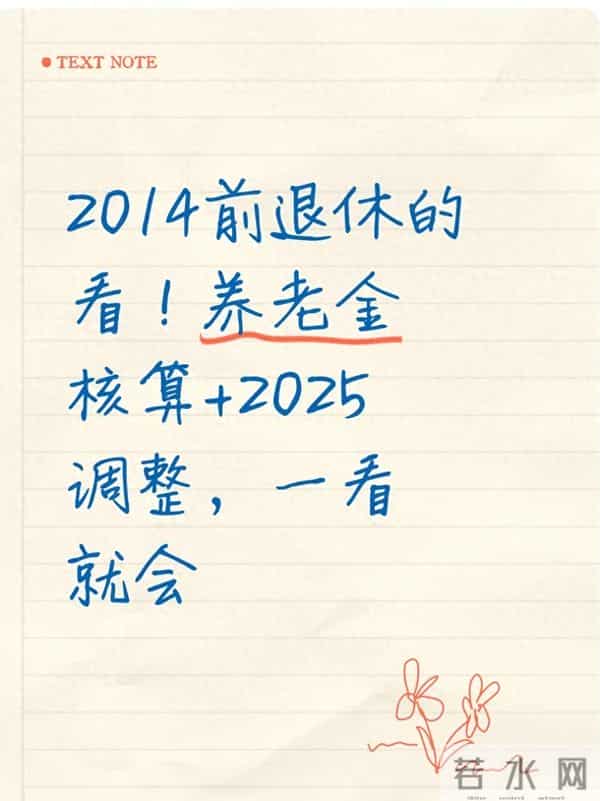 TEXT NOTE
2014前退休的
看！养老金
核算+2025
调整，一看
就会
若水网